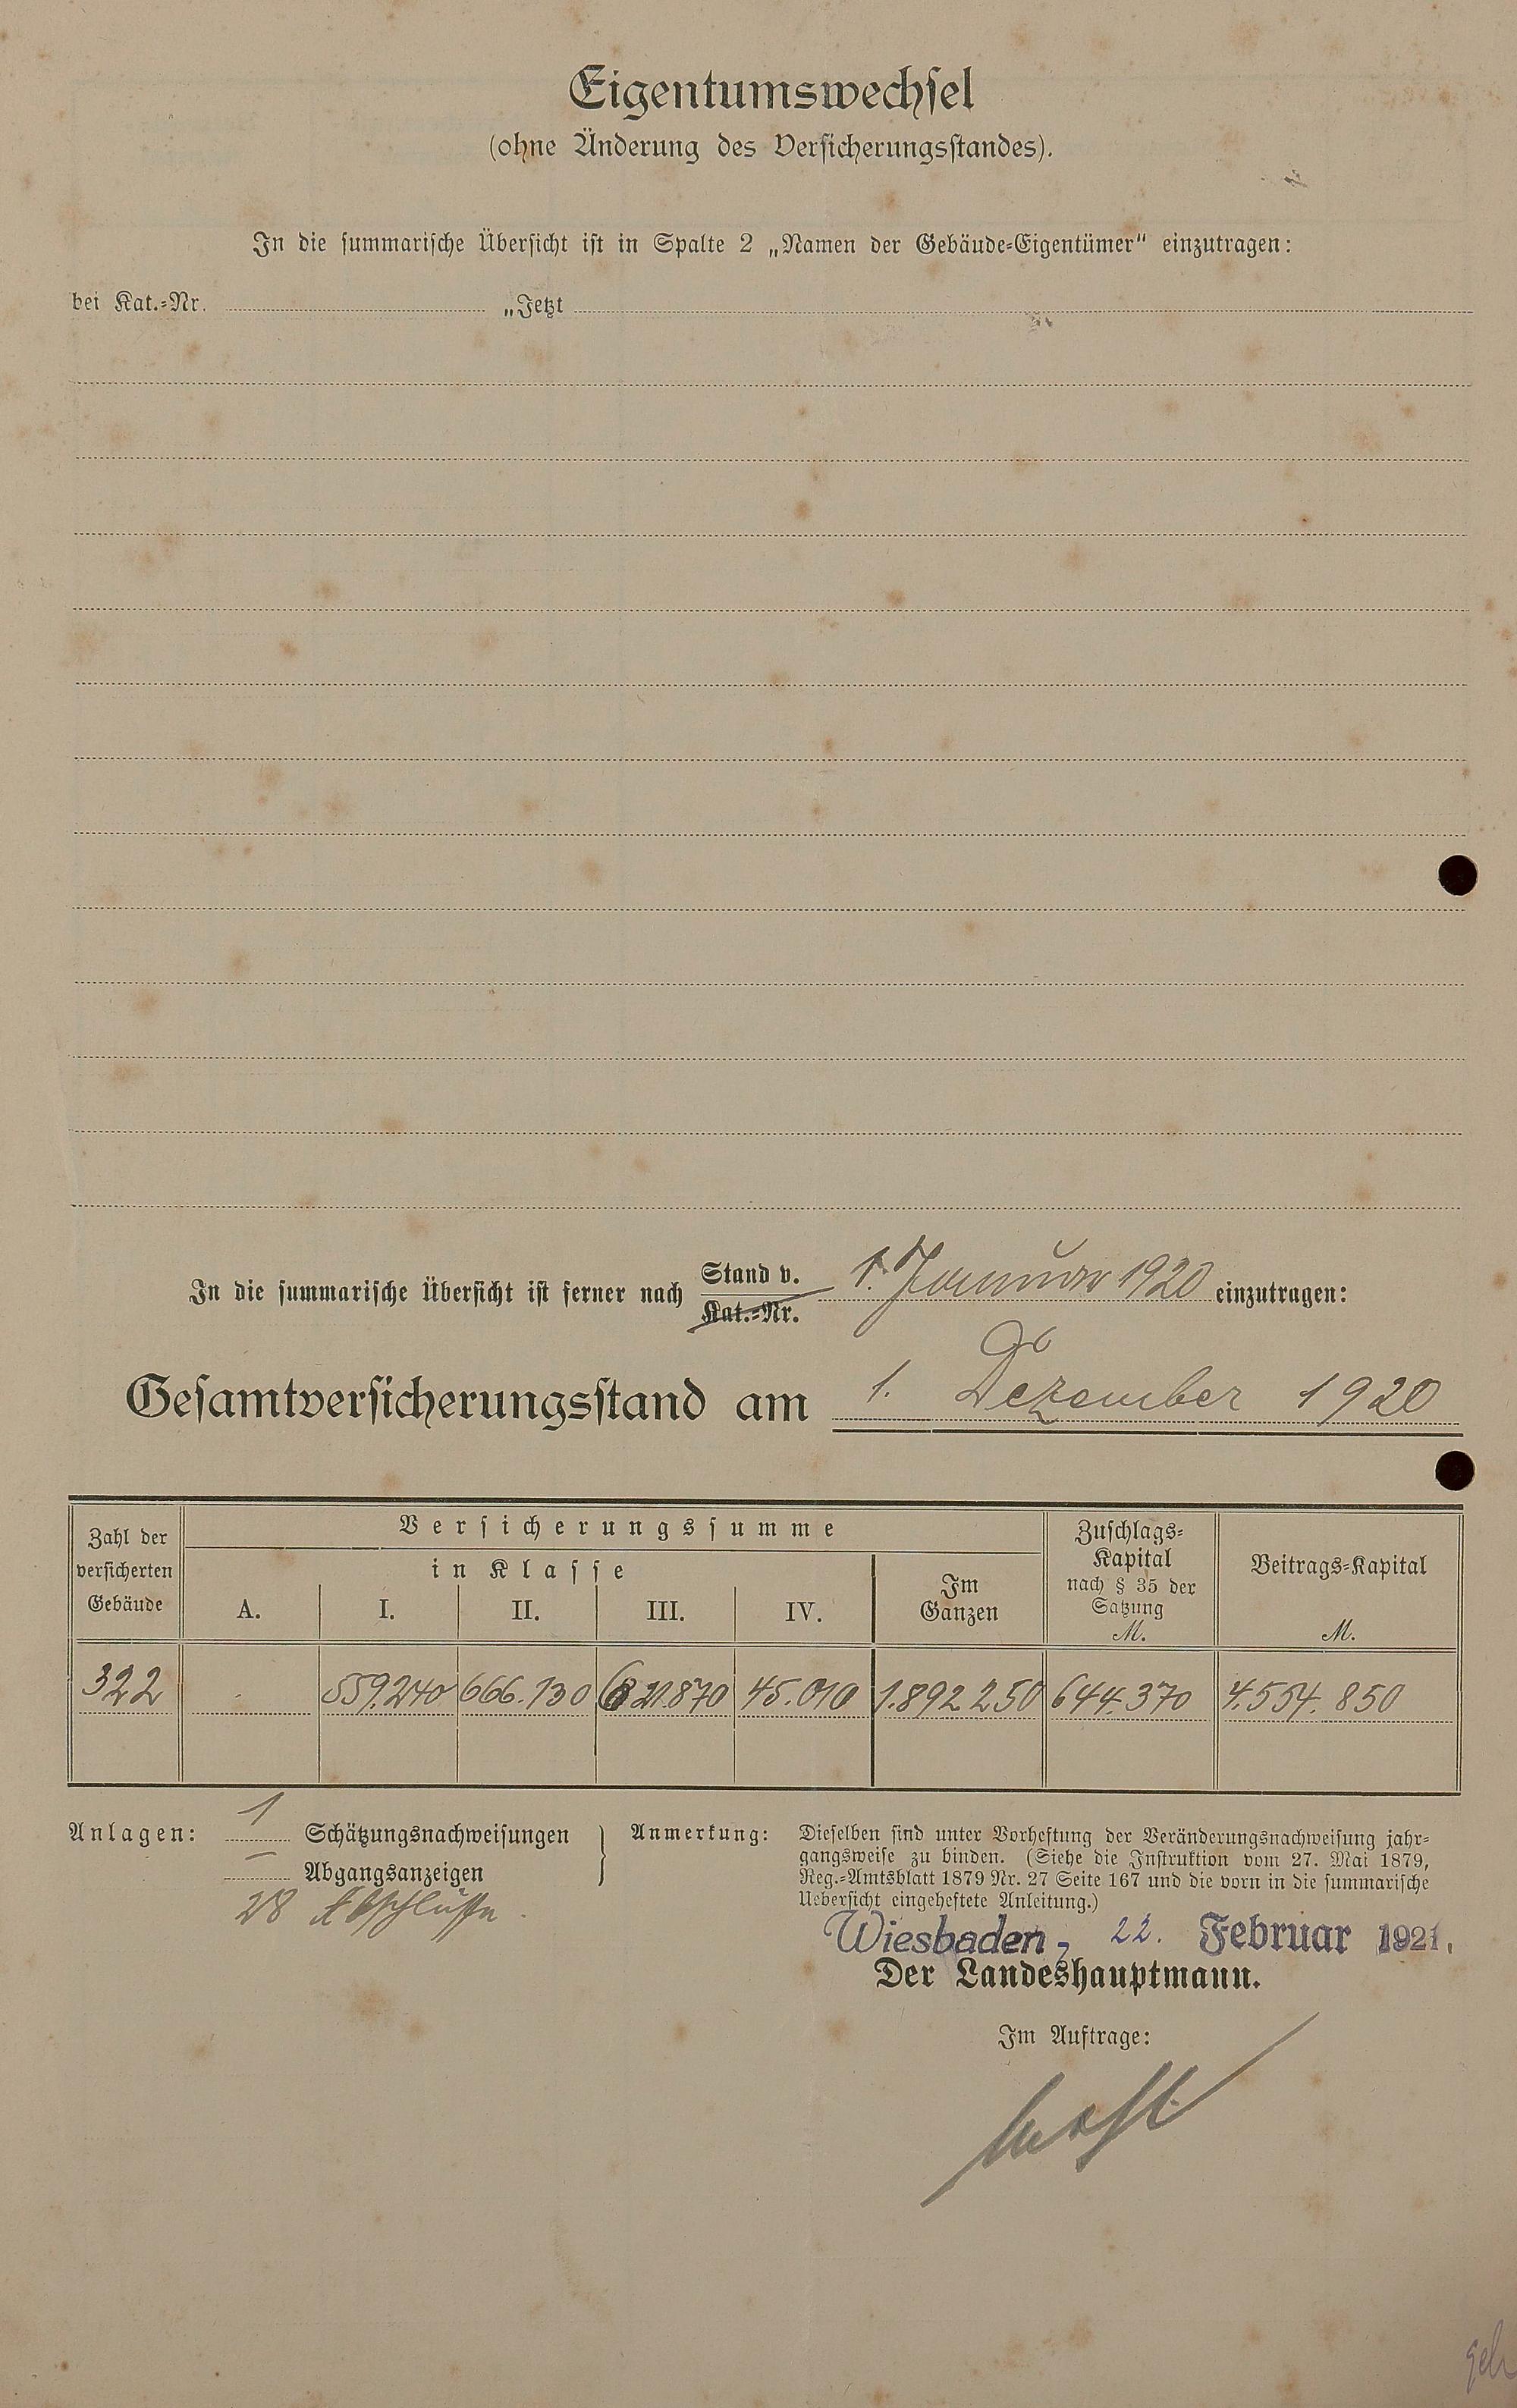 Eigentumswechsel
(ohne Änderung des Versicherungsstandes).
In die summarische Übersicht ist in Spalte 2 „Namen der Gebäude-Eigentümer" einzutragen:
bei Kat.-Nr. „Jetzt
In die summarische Übersicht ist ferner nach Stand v. Kat.-Nr. 1. Januar 1920 einzutragen:
Gesamtversicherungsstand am 1. Dezember 1920
Zahl der versicherten Gebäude
Versicherungssumme
in Klasse
A. I. II. III. IV.
Im Ganzen
Zuschlags-Kapital nach § 35 der Satzung M.
Beitrags-Kapital M.
322 . 559.240 666.130 621.870 45.010 1.892 250 644.370 4.554.850
Anlagen: 1 Schätzungsnachweisungen
– Abgangsanzeigen
28 Abschlüsse.
Anmerkung: Dieselben sind unter Vorheftung der Veränderungsnachweisung jahr-
gangsweise zu binden. (Siehe die Instruktion vom 27. Mai 1879,
Reg.-Amtsblatt 1879 Nr. 27 Seite 167 und die vorn in die summarische
Uebersicht eingeheftete Anleitung.)
Wiesbaden, 22. Februar 1921.
Der Landeshauptmann.
Im Auftrage: